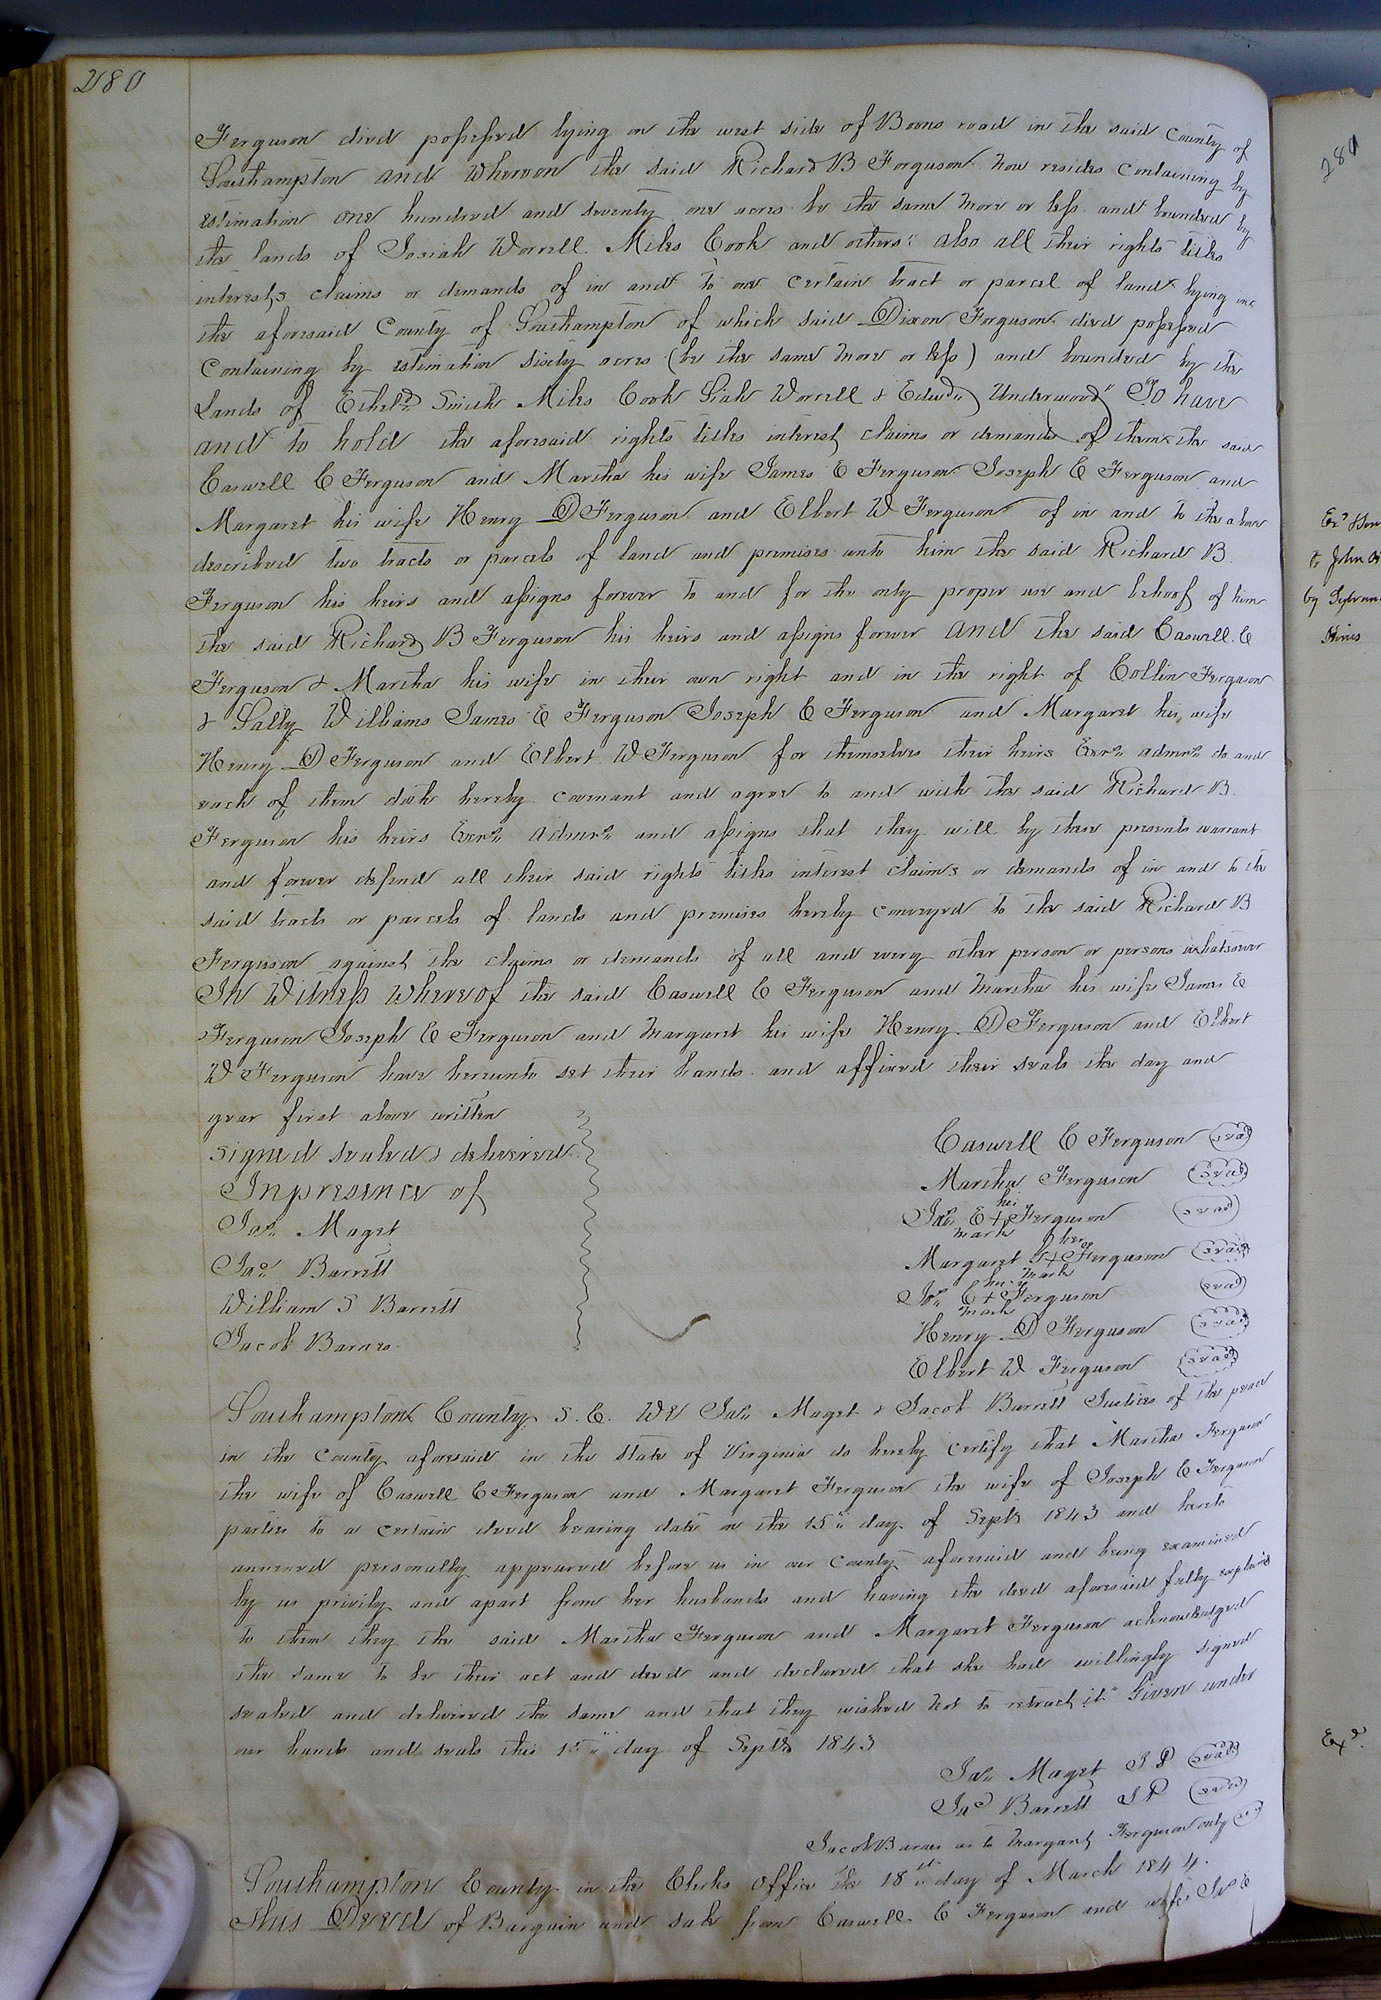 280
Ferguson died possessed lying on the west side of Boons road in the said County of
Southampton and whereon the said Richard B Ferguson now resides containing by
estimation one hundred and seventy one acres be the same more or less and bounded by
the lands of Josiah Worrell Miles Cook and others" also all their rights titles
interests claims or demands of in and to one certain tract or parcel of land lying in
the aforesaid County of Southampton of which said Dixon Ferguson died possessed
Containing by estimation sixty acres (be the same more or less) and bounded by the
Lands of Etheld Smith Miles Cook Siah Worrell & Edwd Underwood" To have
and to hold the aforesaid rights titles interest claims or demands of them the said
Caswell C Ferguson and Martha his wife James E Ferguson Joseph C Ferguson and
Margaret his wife Henry D Ferguson and Elbert W Ferguson of in and to the above
described two tracts or parcels of land and premises unto him the said Richard B
Ferguson his heirs and assigns forever to and for the only proper use and behoof of him
the said Richard B Ferguson his heirs and assigns forever and the said Caswell C
Ferguson & Martha his wife in their own right and in the right of Collin Ferguson
& Sally Williams James E Ferguson Joseph C Ferguson and Margaret his wife
Henry D Ferguson and Elbert W Ferguson for themselves their heirs Exrs admrs do and
each of them doth hereby covenant and agree to and with the said Richard B
Ferguson his heirs Exrs admrs and assigns that they will by these presents warrant
and forever defend all their said rights titles interest claims or demands of in and to the
said tracts or parcels of lands and premises hereby conveyed to the said Richard B
Ferguson against the claims or demands of all and every other person or persons whatsoever
In Witness whereof the said Caswell C Ferguson and Martha his wife James E
Ferguson Joseph C Ferguson and Margaret his wife Henry D Ferguson and Elbert
W Ferguson have hereunto set their hands and affixed their seals the day and
year first above written
Signed sealed & delivered
In presence of
Jas Maget
Jac Barrett
William S Barrett
Jacob Barnes
Caswell C Ferguson seal
Martha Ferguson seal
his
Jas E + Ferguson seal
mark
her
Margaret + Ferguson seal
mark
his
Jos C + Ferguson seal
mark
Henry D Ferguson seal
Elbert W Ferguson seal
Southampton County S.C. We Jas Maget & Jacob Barrett Justices of the peace
in the County aforesaid in the state of Virginia do hereby certify that Martha Ferguson
the wife of Caswell C Ferguson and Margaret Ferguson the wife of Joseph C Ferguson
parties to a certain deed bearing date on the 15" day of Septr 1843 and hereto
annexed personally appeared before us in our County aforesaid and being examined
by us privily and apart from her husbands and having the deed aforesaid fully explained
to them they the said Martha Ferguson and Margaret Ferguson acknowledged
the same to be their act and deed and declared that she had willingly signed
sealed and delivered the same and that they wished not to retract it" Given under
our hands and seals this 15" day of Septr 1843
Jas Maget J P seal
Jac Barrett J P seal
Jacob Barnes as to Margaret Ferguson only seal
Southampton County in the Clerks Office the 18th day of March 1844.
This Deed of Bargain and sale from Caswell C Ferguson and wife Jas E
281
to John
by
Hines
Exd.